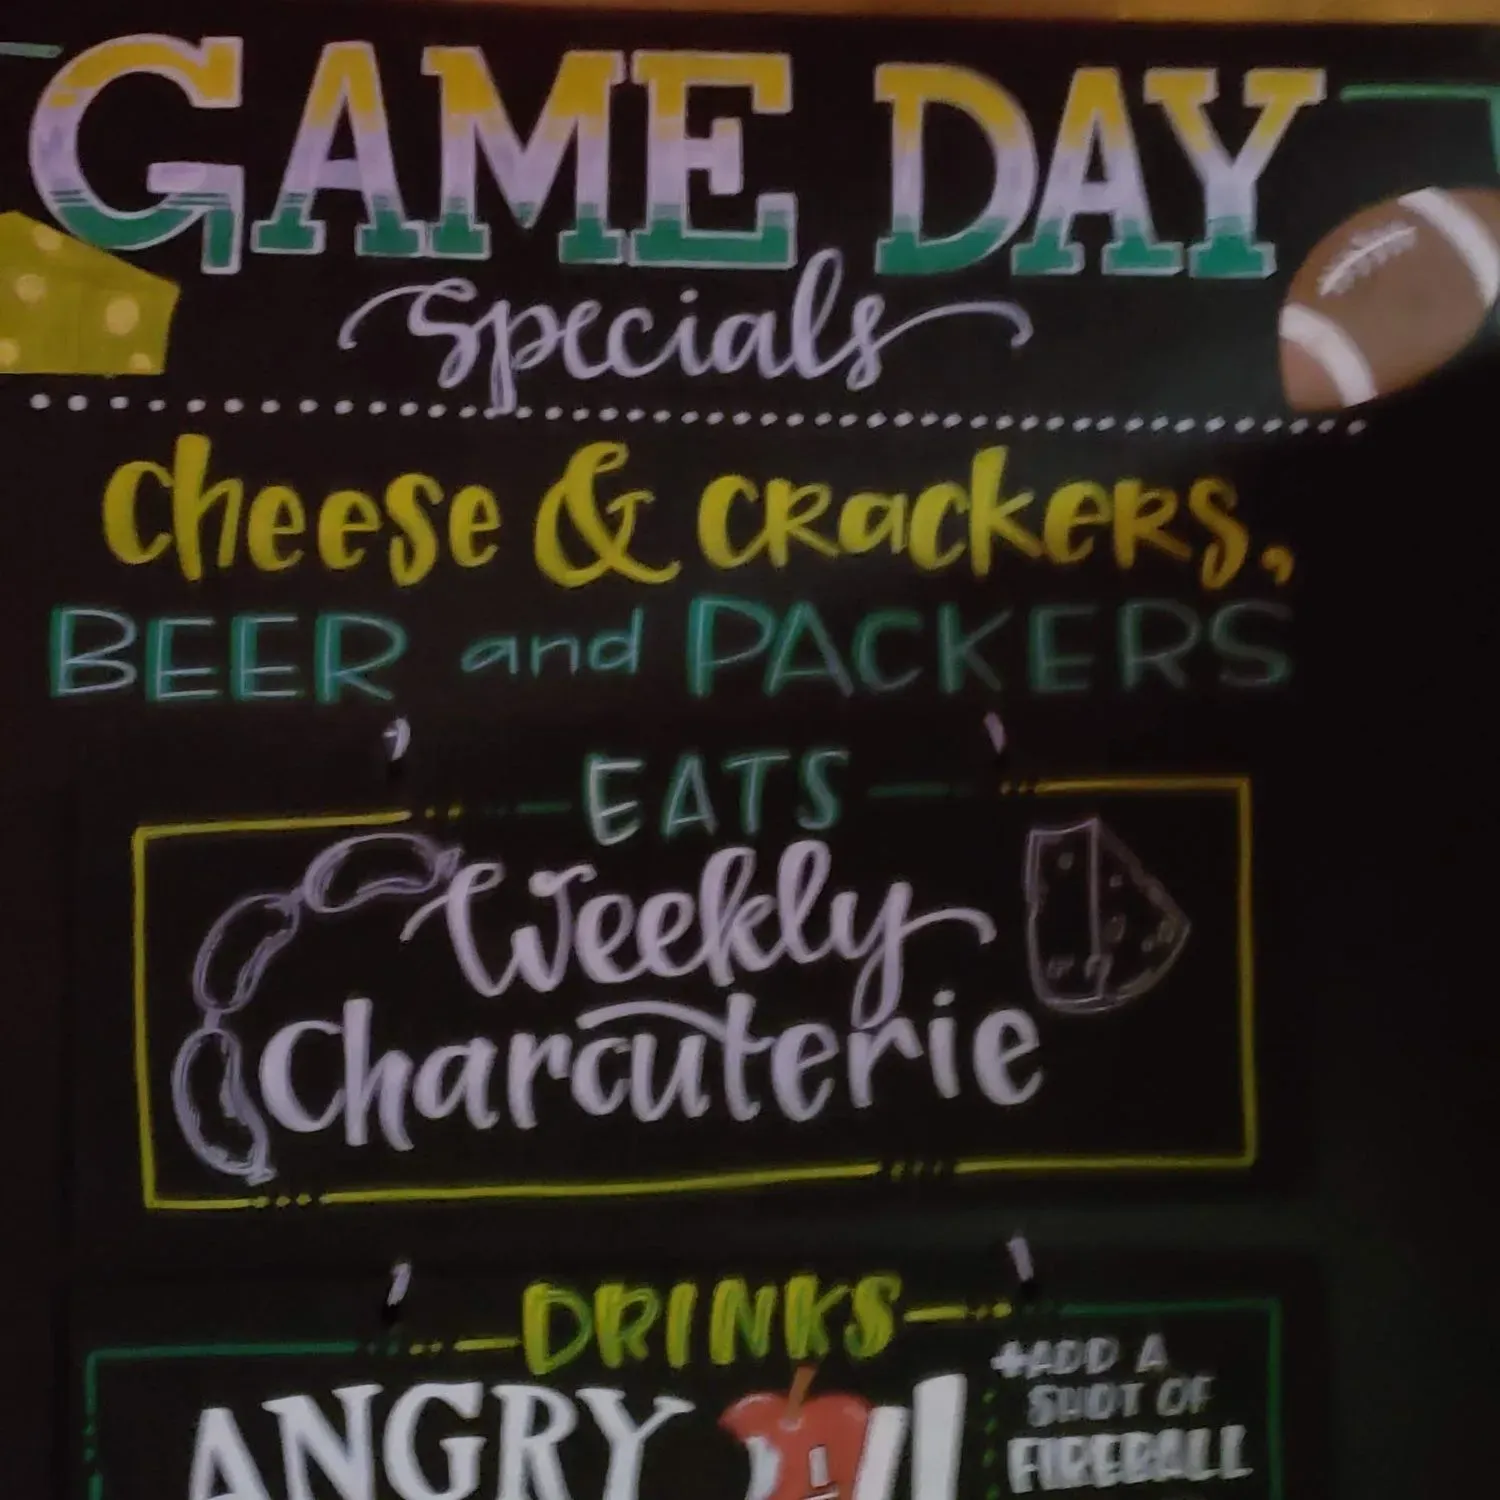 GAME DAY
Specials
cheese & crackers,
BEER and PACKERS
EATS
Weekly
Charcuterie
DRINKS
ANGRY
+ADD A
SHOT OF
FIREBALL